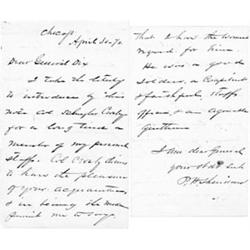 Chicago
April 30. 70
Dear General Dix
I take the liberty
to introduce by this
note Col Schuyler Crosby
for a long time a
member of my personal
staff. Col Crosby desires
to have the pleasure
of your acquaintance
and in being the medium
permit me to say
that I have the warmest
regard for him
He was a good
soldier, a competent
& faithful staff
officer, & an agreeable
gentleman
I am dear General
your obdt servt
P. H. Sheridan